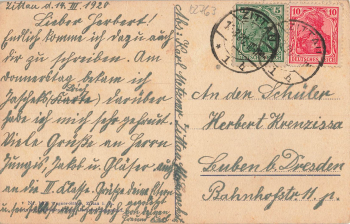 Zittau d. 14. III. 1920
Lieber Herbert!
Endlich komme ich dazu auch
dir zu schreiben. Am
Donnerstag bekam ich
Deine
Jaschels (Karte) darüber
habe ich mich sehr gefreut.
Viele Grüße an Herrn
Jungis, Jakob u. Gläser auch
an die III. Klasse. Grüße Deine
u. herzlich
5
10
DEUTSCHES REICH
ZITTAU
An den Schüler
Herbert Krenzissa
Leuben b. Dresden
Bahnhofstr. 11 p.
Abs. Karl Zittau